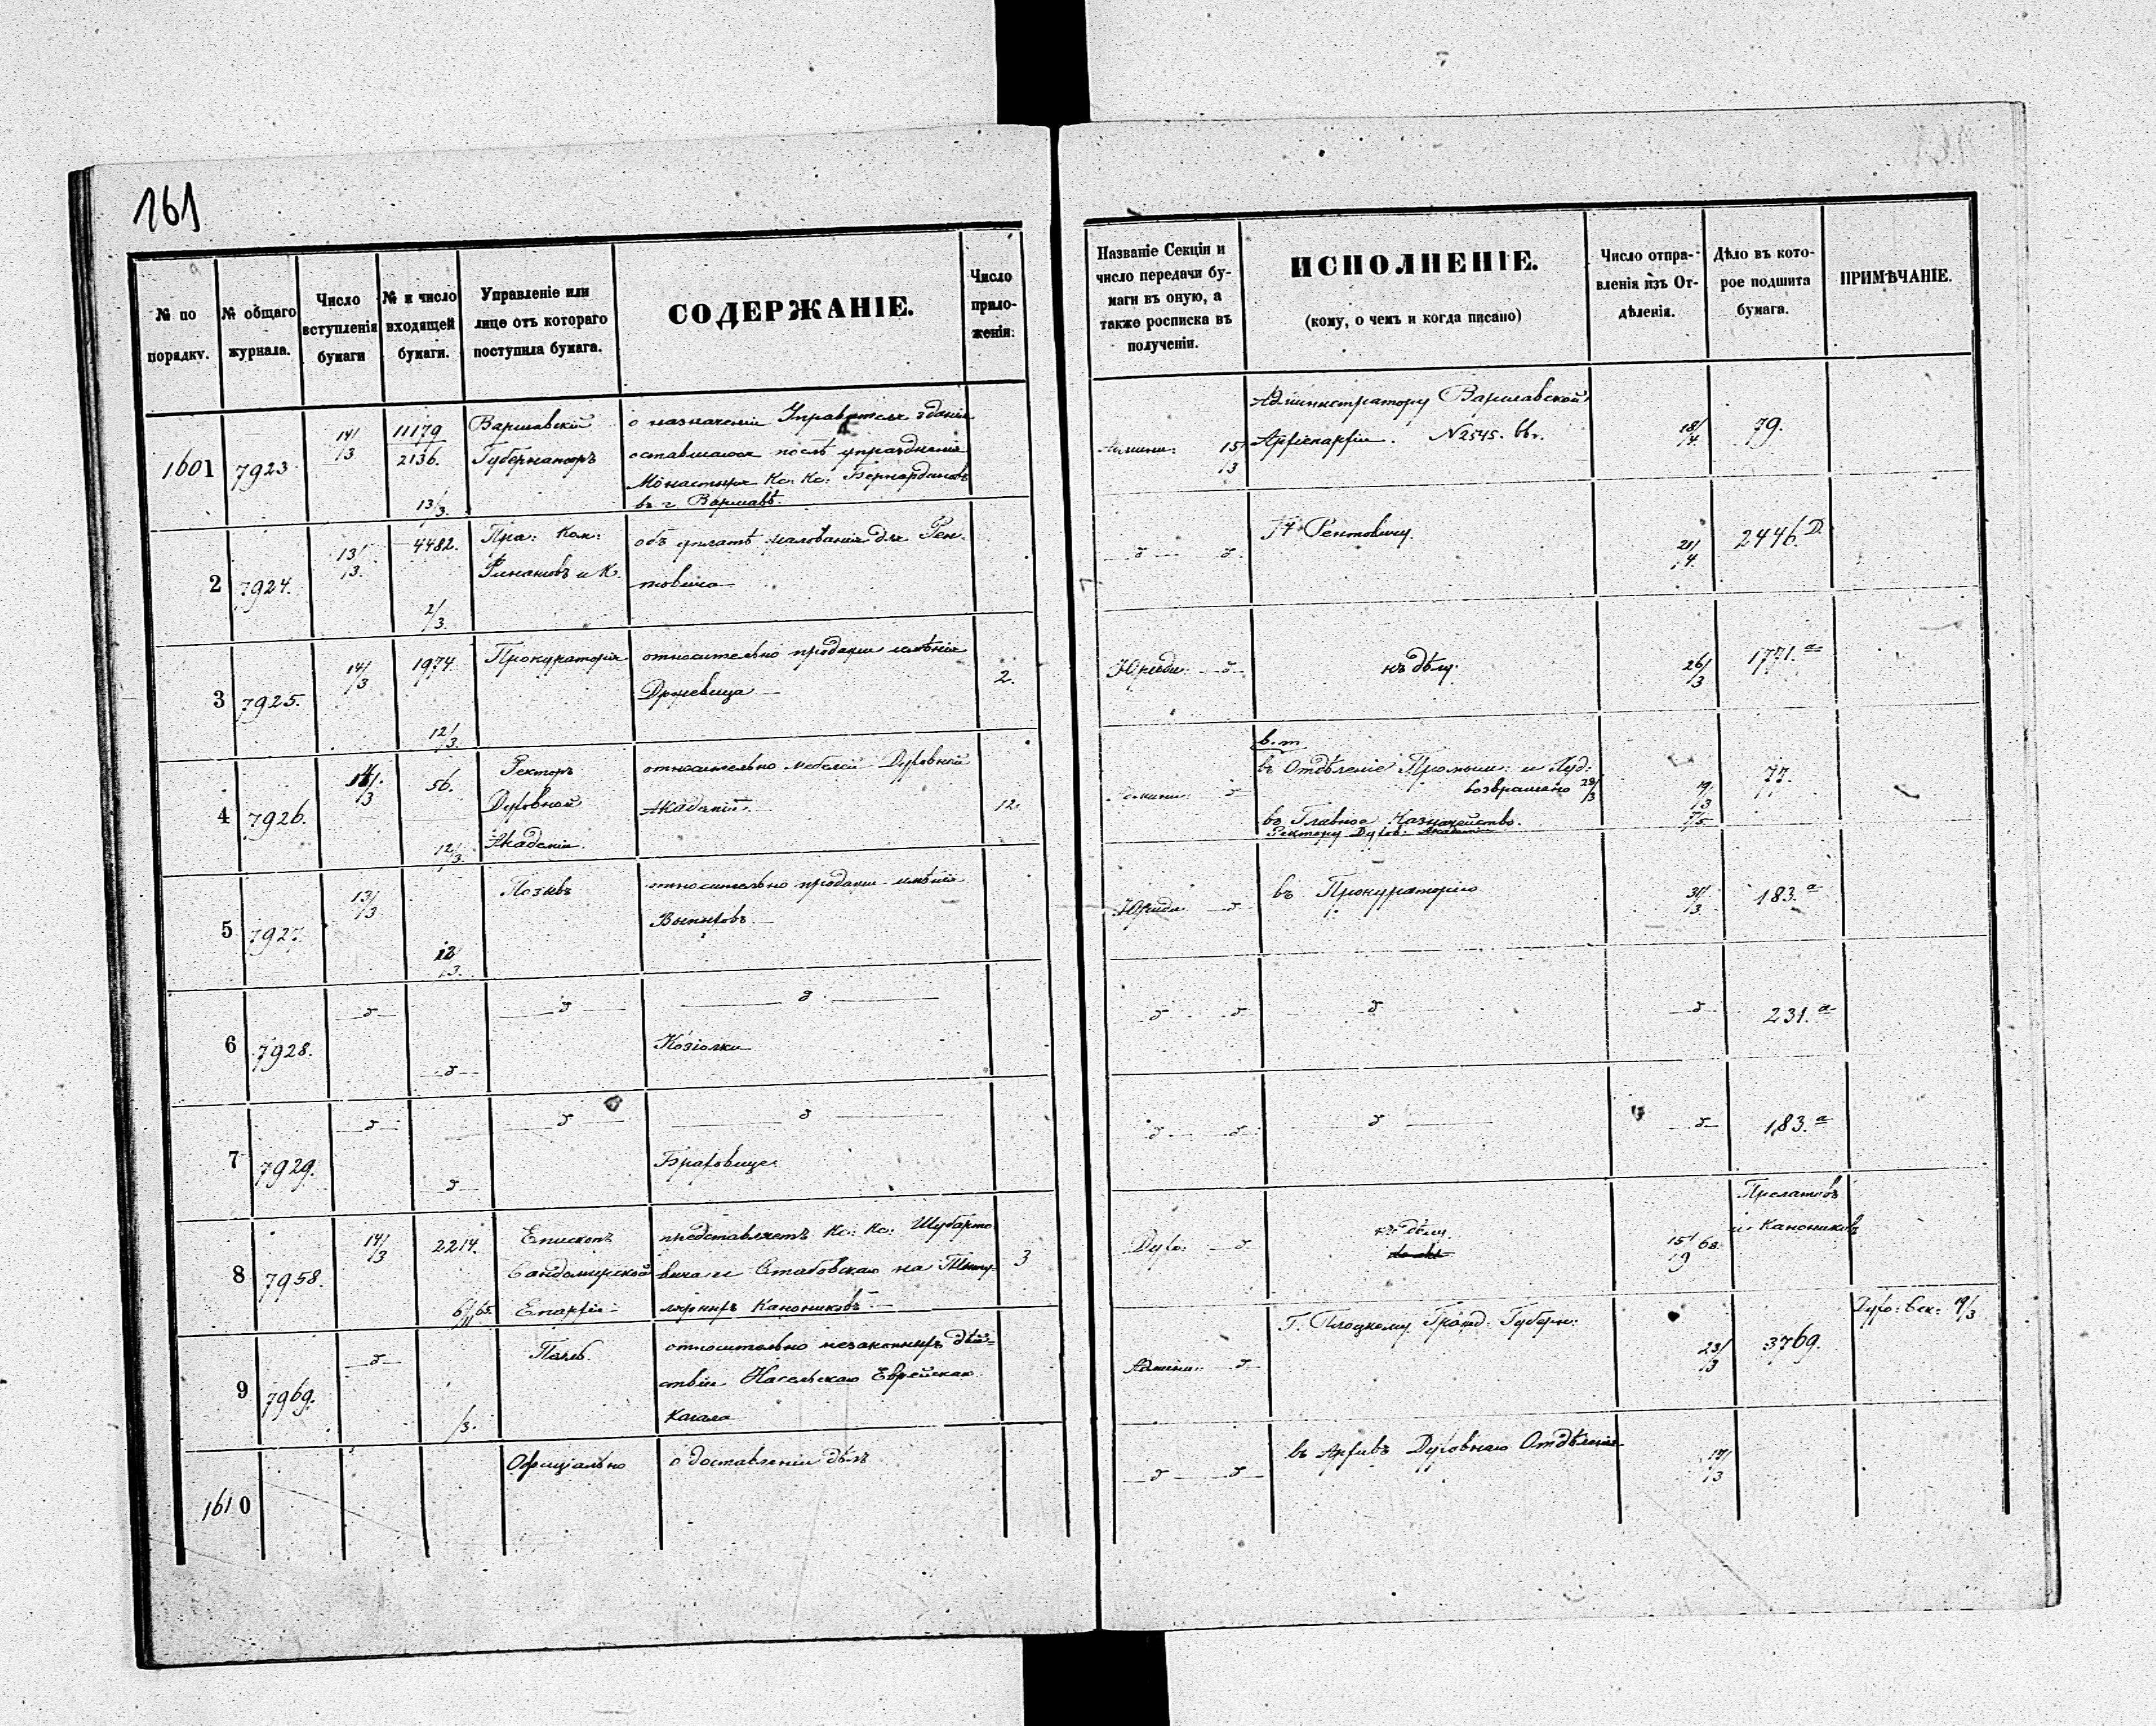 161
№ по порядку.
№ общаго журнала.
Число вступленія бумаги
№ и число входящей бумаги.
Управленіе или лице отъ котораго поступила бумага.
СОДЕРЖАНІЕ.
Число прило- женія.
Названіе Секціи и число передачи бу- маги въ оную, а также росписка въ полученіи.
ИСПОЛНЕНІЕ.
(кому, о чемъ и когда писано)
Число отпра- вленія изъ От- дѣленія.
Дѣло въ кото- рое подшита бумага.
ПРИМѢЧАНІЕ.
1601 7923 14/3 11179 Варшавскій о назначеніи Управителя зданія
2136. Губернаторъ оставшагося послѣ упраздненія
Монастыря Кс: Кс: Бернардиновъ
13/3. въ г. Варшавѣ.
15/3 Администратору Варшавской
Архіепархіи. N 2545. 18/4 79.
2 7924. 13/3. 4482. Пра: Ком: объ уплатѣ жалованія для Рен-
Финансовъ и К. товича
2/3.
Г Рентовичу. 21/4. 2446. D.
3 7925. 14/3 1974. Прокураторія относительно продажи имѣнія
Држевица 2.
12/3.
Юриди. къ дѣлу. 26/3 1771. a
4 7926. 14/3 56. Ректоръ относительно мебелей Духовной
Духовной Академіи. 12.
12/3. Академіи.
в. т.
въ Отдѣленіе Промыш: и Куд:
возвращено 28/3 19/3 77.
въ Главное Казначейство. 7/5
Ректору Духов: Академіи
5 7927. 13/3 Позивъ относительно продажи имѣнія
12/3.
Юриди въ Прокураторію 31/3. 183. a
6 7928.
Козіолки
231. a
7 7929.
Браховице
183. a
8 7958. 14/3 2214. Епископъ представляетъ Кс: Кс: Шубарто
Сандомирской вича и Стабовскаго на Титу- 3
6/11 65. Епархіи лярныхъ Канониковъ
Духо: къ дѣлу. 15/9 68. Прелатовъ
и Канониковъ
9 7969. относительно незаконныхъ дѣй-
ствіи Насельскаго Еврейскаго
/3. Кагала
Админи: Г. Плоцкому Гражд: Губерн: 23/3 3769. Духо: Сек: 19/3
1610 Офиціально о доставленіи дѣлъ
въ Архивъ Духовнаго Отдѣленія 17/3